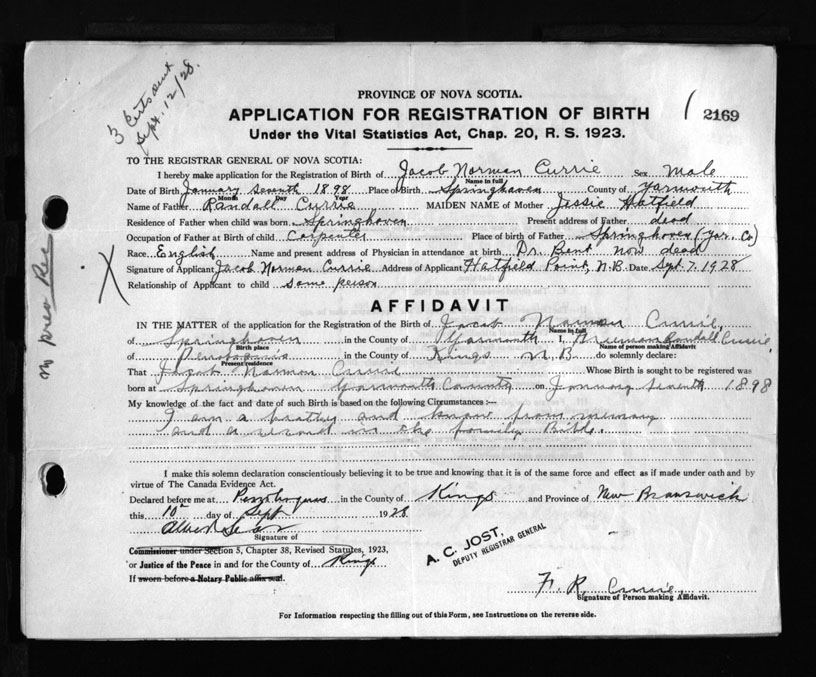 3 Certs sent
Sept. 12/28.
PROVINCE OF NOVA SCOTIA.
APPLICATION FOR REGISTRATION OF BIRTH
2169
Under the Vital Statistics Act, Chap. 20, R. S. 1923.
TO THE REGISTRAR GENERAL OF NOVA SCOTIA:
I hereby make application for the Registration of Birth of Jacob Norman Currie Sex Male
Name in full
Date of Birth January seventh 1898 Place of Birth Springhaven County of Yarmouth
Month Day Year
Name of Father Randall Currie MAIDEN NAME of Mother Jessie Hatfield
Residence of Father when child was born Springhaven Present address of Father dead
Occupation of Father at Birth of child Carpenter Place of birth of Father Springhaven (Yar. Co)
Race English Name and present address of Physician in attendance at birth Dr. Bent now dead
Signature of Applicant Jacob Norman Currie Address of Applicant Hatfield Point, N.B. Date Sept. 7. 1928
Relationship of Applicant to child same person
no prev Rec
AFFIDAVIT
IN THE MATTER of the application for the Registration of the Birth of Jacob Norman Currie,
Name in full
of Springhaven in the County of Yarmouth I, Currie,
Birth place Name of person making Affidavit
of in the County of Kings N.B do solemnly declare:
Present residence
That Jacob Norman Currie Whose Birth is sought to be registered was
born at Springhaven Yarmouth County on January seventh 1898
My knowledge of the fact and date of such Birth is based on the following Circumstances :—
I am a brother and know from memory
and a record in the family Bible.
I make this solemn declaration conscientiously believing it to be true and knowing that it is of the same force and effect as if made under oath and by
virtue of The Canada Evidence Act.
Declared before me at in the County of Kings and Province of New Brunswick
this 10th day of Sept 1928
Signature of
Commissioner under Section 5, Chapter 38, Revised Statutes, 1923,
or Justice of the Peace in and for the County of Kings
If sworn before a Notary Public affix seal.
A. C. JOST,
DEPUTY REGISTRAR GENERAL
Currie
Signature of Person making Affidavit.
For Information respecting the filling out of this Form, see Instructions on the reverse side.